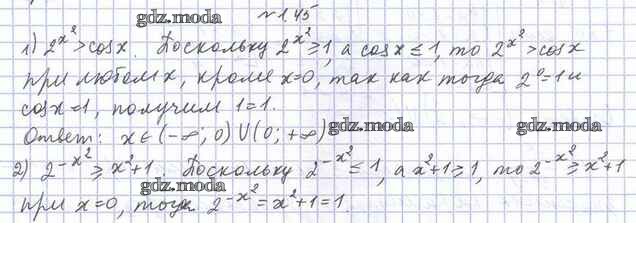 gdz.moda
№1.45
1) 2^{x^2}>cosx. Поскольку 2^{x^2}≥1, а cosx≤1, то 2^{x^2}>cosx
gdz.moda gdz.moda
при любом x, кроме x=0, так как тогда 2^0=1 и
cosx=1, получим 1=1.
Ответ: x∈(-∞; 0)∪(0; +∞) gdz.moda gdz.moda
2) 2^{-x^2}≥x^2+1. Поскольку 2^{-x^2}≤1, а x^2+1≥1, то 2^{-x^2}≥x^2+1
gdz.moda gdz.moda
при x=0, тогда 2^{-x^2}=x^2+1=1.